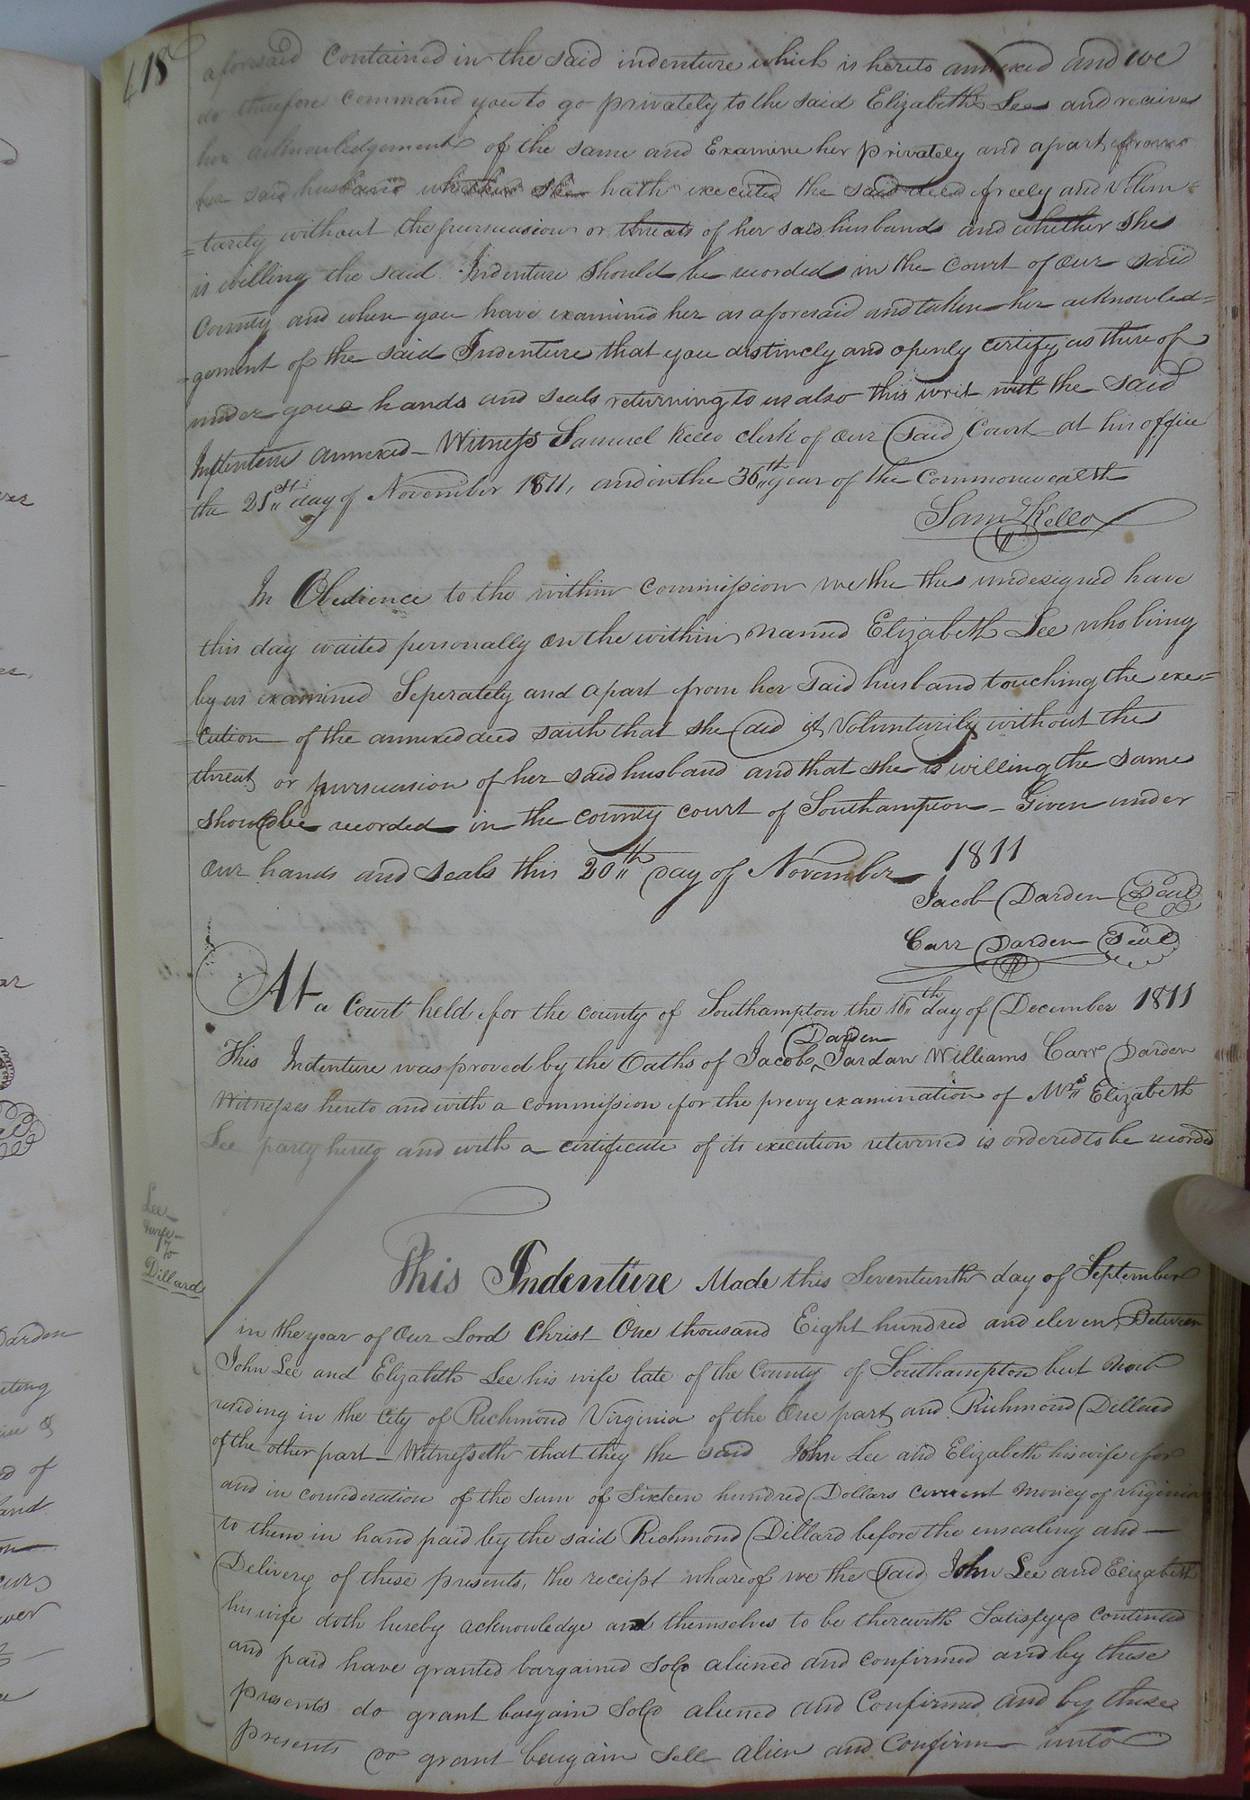 418
aforesaid contained in the said indenture which is hereto annexed and we
do therefore command you to go privately to the said Elizabeth Lee and receive
her acknowledgement of the same and Examine her privately and apart from
her said husband whether she hath executed the said deed freely and Volun=
=tarily without the pursuasion or threats of her said husband and whether she
is willing the said Indenture should be recorded in the Court of our said
County and when you have examined her as aforesaid and taken her acknowled=
=gement of the said Indenture that you distincly and openly certify us there of
under your hands and seals returning to us also this writ with the said
Indenture annexed - Witness Samuel Kello clerk of our said Court at his office
the 21st day of November 1811, and in the 36th year of the Commonwealth
Saml Kello
In Obedience to the within commission we the the undesigned have
this day waited personally on the within named Elizabeth Lee who being
by us examined Seperately and apart from her said husband touching the exe=
=cution of the annexed deed saith that she did it Voluntarily without the
threat or pursuasion of her said husband and that she is willing the same
should be recorded in the county court of Southampton - Given under
our hands and seals this 20th day of November 1811
Jacob Darden Seal
Carr Darden Seal
At a Court held for the county of Southampton the 16th day of December 1811
Darden
This Indenture was proved by the Oaths of Jacob Jordan Williams Carr Darden
Witnesses hereto and with a commission for the prevy examination of Mrs Elizabeth
Lee party hereto and with a certificate of its execution returned is ordered to be recorded
Lee
to
Dillard
This Indenture Made this Seventeenth day of September
in the year of Our Lord Christ One thousand Eight hundred and eleven Between
John Lee and Elizabeth Lee his wife late of the County of Southampton but now
residing in the City of Richmond Virginia of the One part and Richmond Dillard
of the other part - Witnesseth that they the said John Lee and Elizabeth his wife for
and in consideration of the sum of Sixteen hundred Dollars current money of Virginia
to them in hand paid by the said Richmond Dillard before the ensealing and -
Delivery of these presents, the receipt whareof we the said John Lee and Elizabeth
his wife doth hereby acknowledge and themselves to be therewith Satisfyed contented
and paid have granted bargained sold aliened and confirmed and by these
presents do grant bargain sold aliened and Confirmed and by these
presents do grant bargain sell alien and Confirm unto